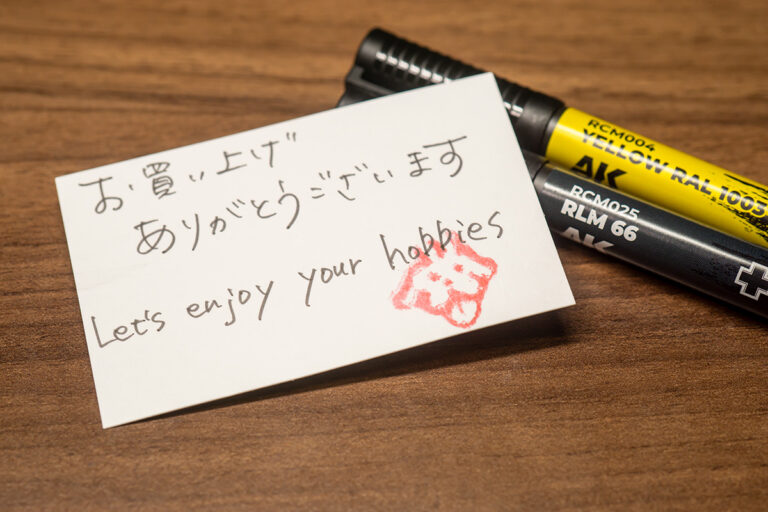 お買い上げ
ありがとうございます
Let's enjoy your hobbies
RCM004
YELLOW RAL 1003
AK
RCM025
RLM 66
AK